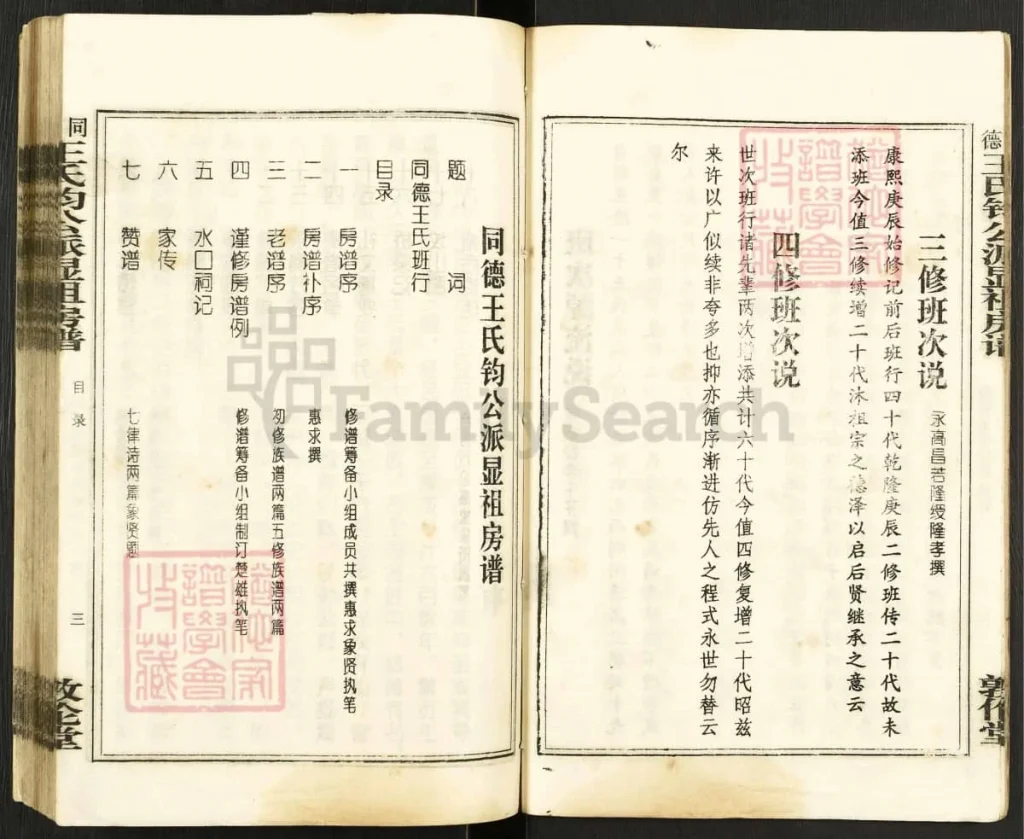 三修班次说
永高昌若隆绶隆孝撰
康熙庚辰始修记前后班行四十代乾隆庚辰二修班传二十代故未
添班今值三修续增二十代沐祖宗之德泽以启后贤继承之意云
四修班次说
世次班行诸先辈两次增添共计六十代今值四修复增二十代昭兹
来许以广似续非夸多也抑亦循序渐进仿先人之程式永世勿替云
尔
同德王氏钧公派显祖房谱
题 词
同德王氏班行
目录
一 房谱序 修谱筹备小组成员共撰惠求象贤执笔
二 房谱补序 惠求撰
三 老谱序 初修族谱两篇五修族谱两篇
四 谨修房谱例 修谱筹备小组制订楚雄执笔
五 水口祠记
六 家传
七 赞谱 七律诗两篇象贤题
同 王氏钧公派显祖房谱
目录
三
敦伦堂
德 王氏钧公派显祖房谱
敦伦堂
譜學會
收藏
譜學會
收藏
FamilySearch